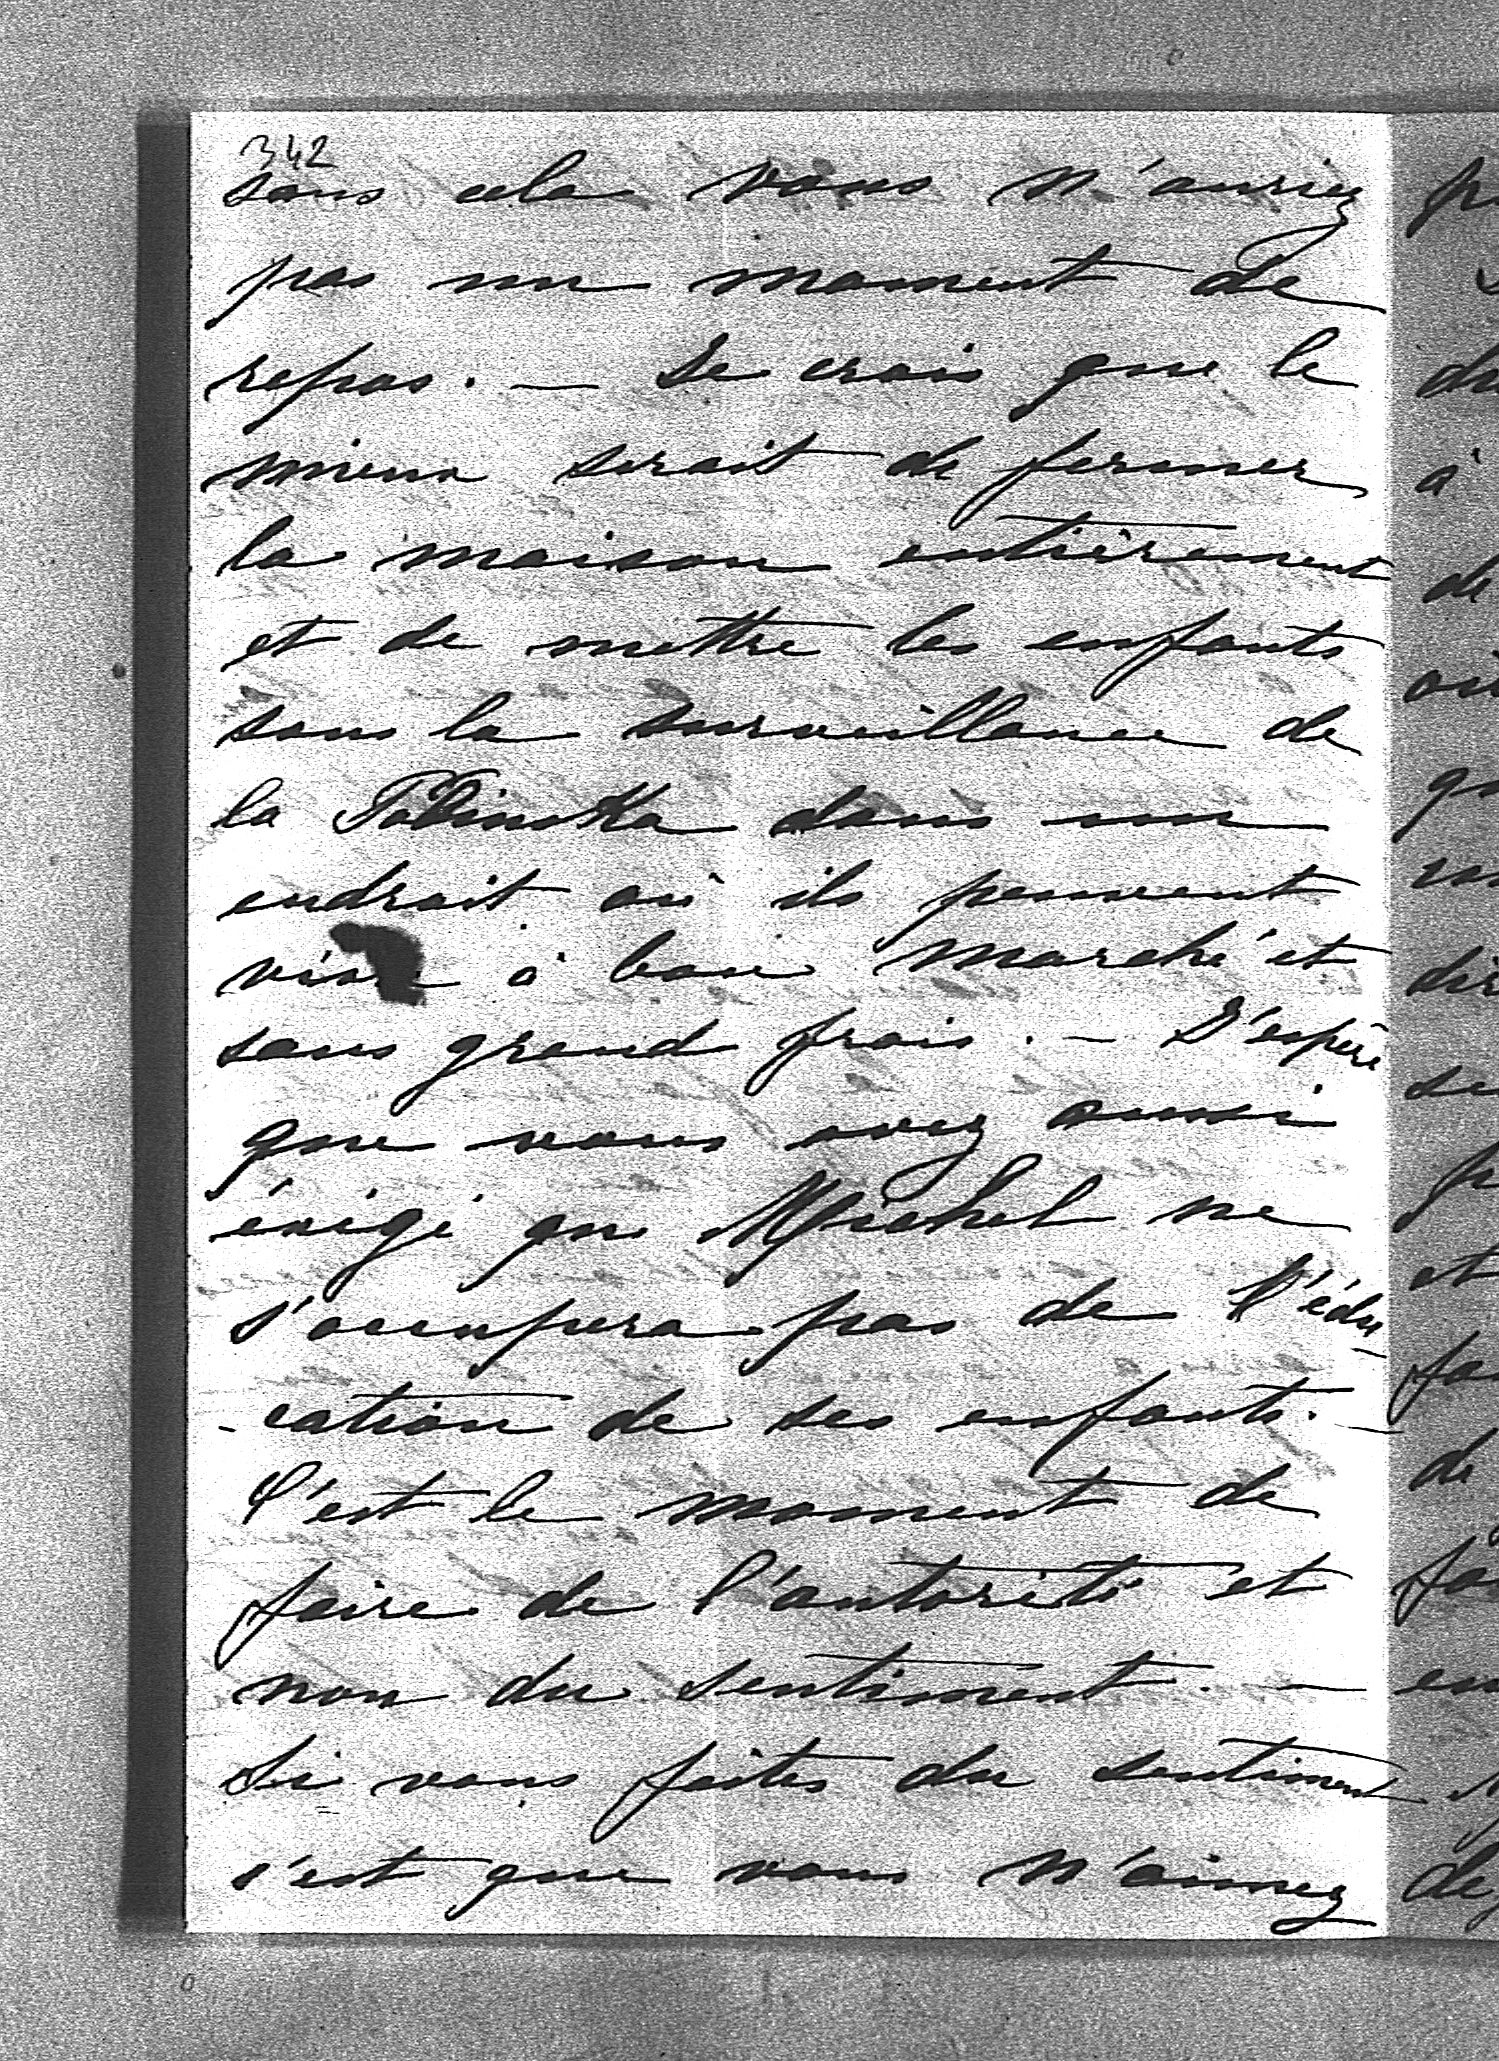 342
sans cela vous n'auriez
pas un moment de
repos. — Je crois que le
mieux serait de fermer
la maison entièrement
et de mettre les enfants
sous la surveillance de
la dans un
endroit où ils peuvent
vivre à bon marché et
sans grand frais. — J'espère
que vous avez aussi
éxigé que Michel ne
s'occupera pas de l'édu-
-cation de ses enfants. —
C'est le moment de
faire de l'autorité et
non du sentiment. —
Si vous faites du sentiment
c'est que vous n'aimez